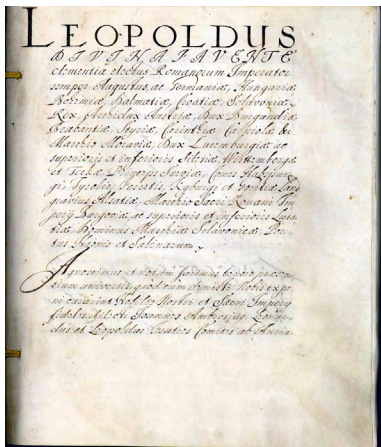 LEOPOLDUS
DIVINA FAVENTE
clementia electus Romanorum Imperator
semper Augustus, ac Germaniæ, Hungariæ
Bohemiæ, Dalmatiæ, Croatiæ, Sclavoniæ
Rex, Archidux Austriæ, Dux Burgundiæ
Brabantiæ, Styriæ, Carinthiæ, Carniolæ &
Marchio Moraviæ, Dux Lucemburgiæ ac
superioris et inferioris Silesiæ, Wirttembergæ
et Teckæ, Princeps Sueviæ, Comes Habspur
gi, Tyrolis, Ferretis, Kyburgi et Goritiæ, Land
gravius Alsatiæ, Marchio Sacri Romani Im
perij Burgoviæ, ac superioris et inferioris Lusa
tiæ, Dominus Marchiæ Sclavonicæ Por
tus Naonis et Salinarum.
Agnoscimus et notum facimus tenore præsen
tium universis, quod cum
fideles
et Leopoldus Comites ab